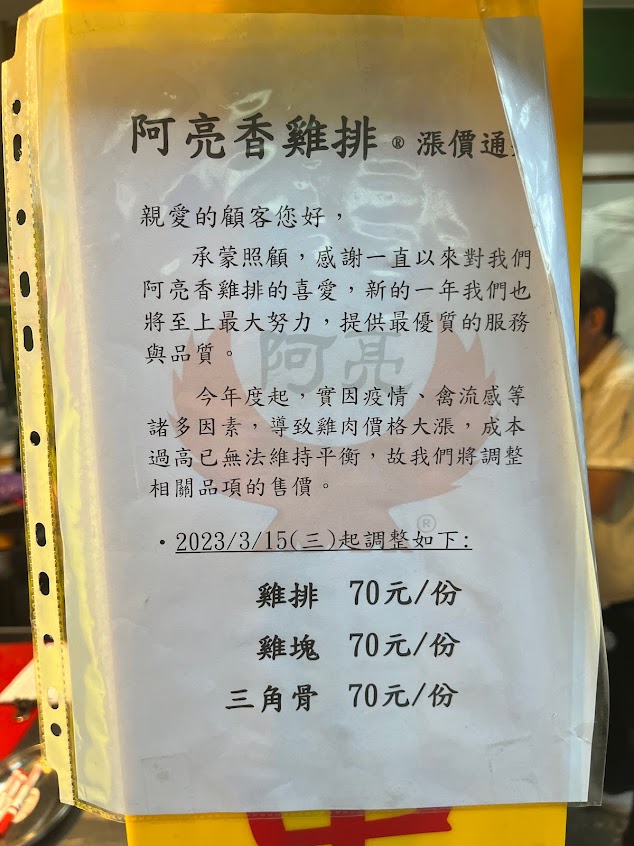 阿亮香雞排® 漲價通
親愛的顧客您好，
承蒙照顧，感謝一直以來對我們
阿亮香雞排的喜愛，新的一年我們也
將至上最大努力，提供最優質的服務
與品質。
阿亮
今年度起，實因疫情、禽流感等
諸多因素，導致雞肉價格大漲，成本
過高已無法維持平衡，故我們將調整
相關品項的售價。
®
・2023/3/15(三)起調整如下:
雞排 70元/份
雞塊 70元/份
三角骨 70元/份